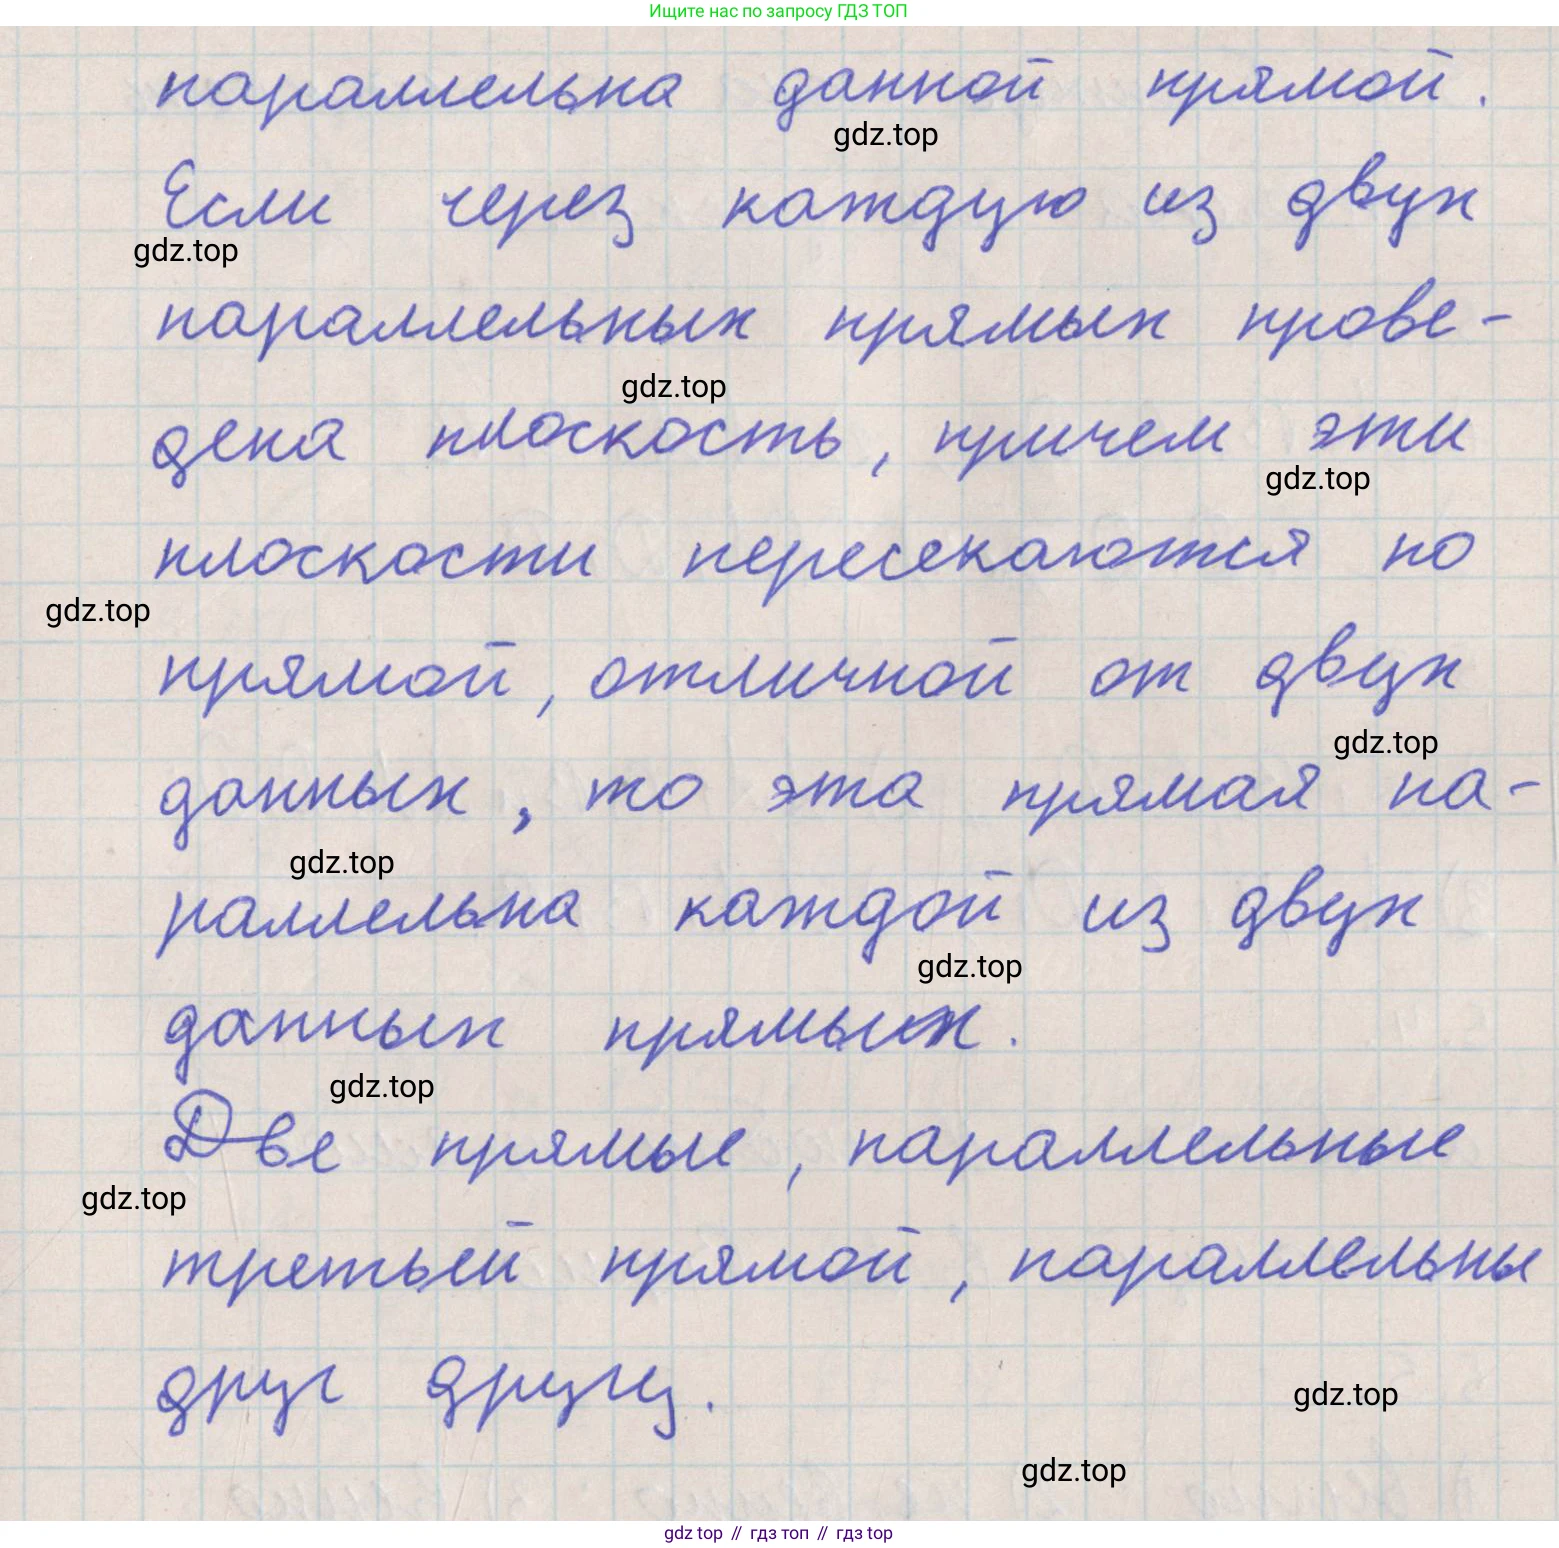 Ищите нас по запросу ГДЗ ТОП
параллельна данной прямой.
gdz.top
Если через каждую из двух
gdz.top
параллельных прямых прове-
gdz.top
дена плоскость, причем эти
gdz.top
плоскости пересекаются по
gdz.top
прямой, отличной от двух
gdz.top
данных, то эта прямая па-
gdz.top
раллельна каждой из двух
gdz.top
данных прямых.
gdz.top
Две прямые, параллельные
gdz.top
третьей прямой, параллельны
друг другу.
gdz.top
gdz.top
gdz top // гдз топ // гдз top